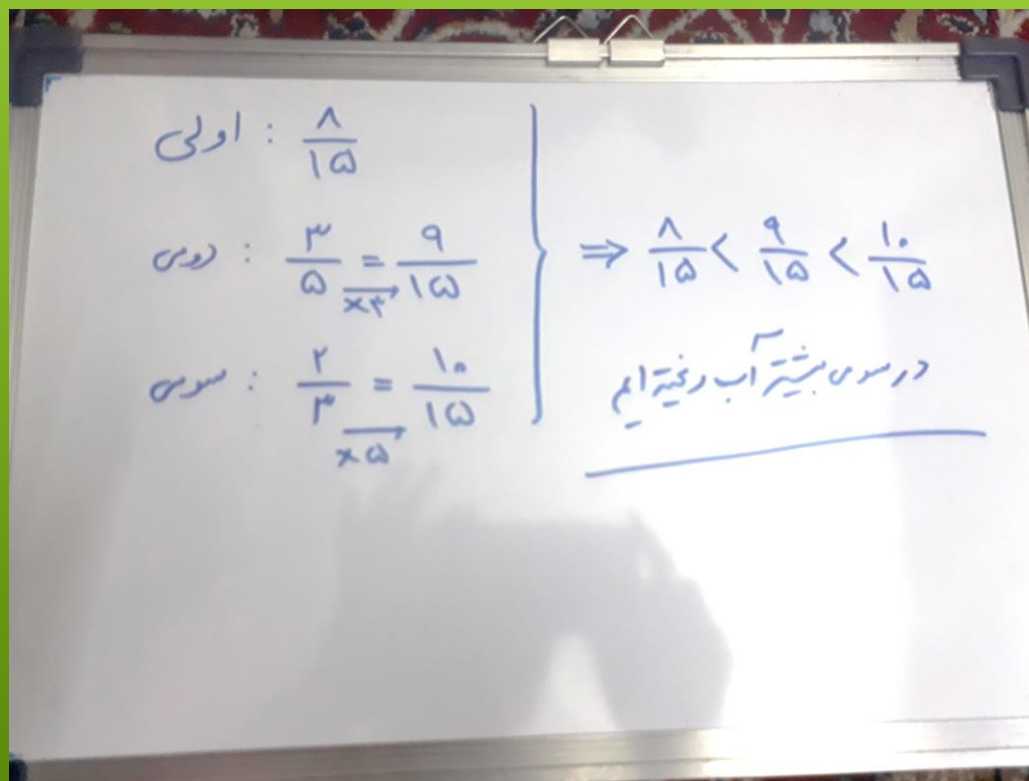 اولی : ۸/۱۵
دومی : ۳/۵ = ۹/۱۵
×۳
سومی : ۲/۳ = ۱۰/۱۵
×۵
⇒ ۸/۱۵ < ۹/۱۵ < ۱۰/۱۵
در سومی بیشتر آب ریخته ایم